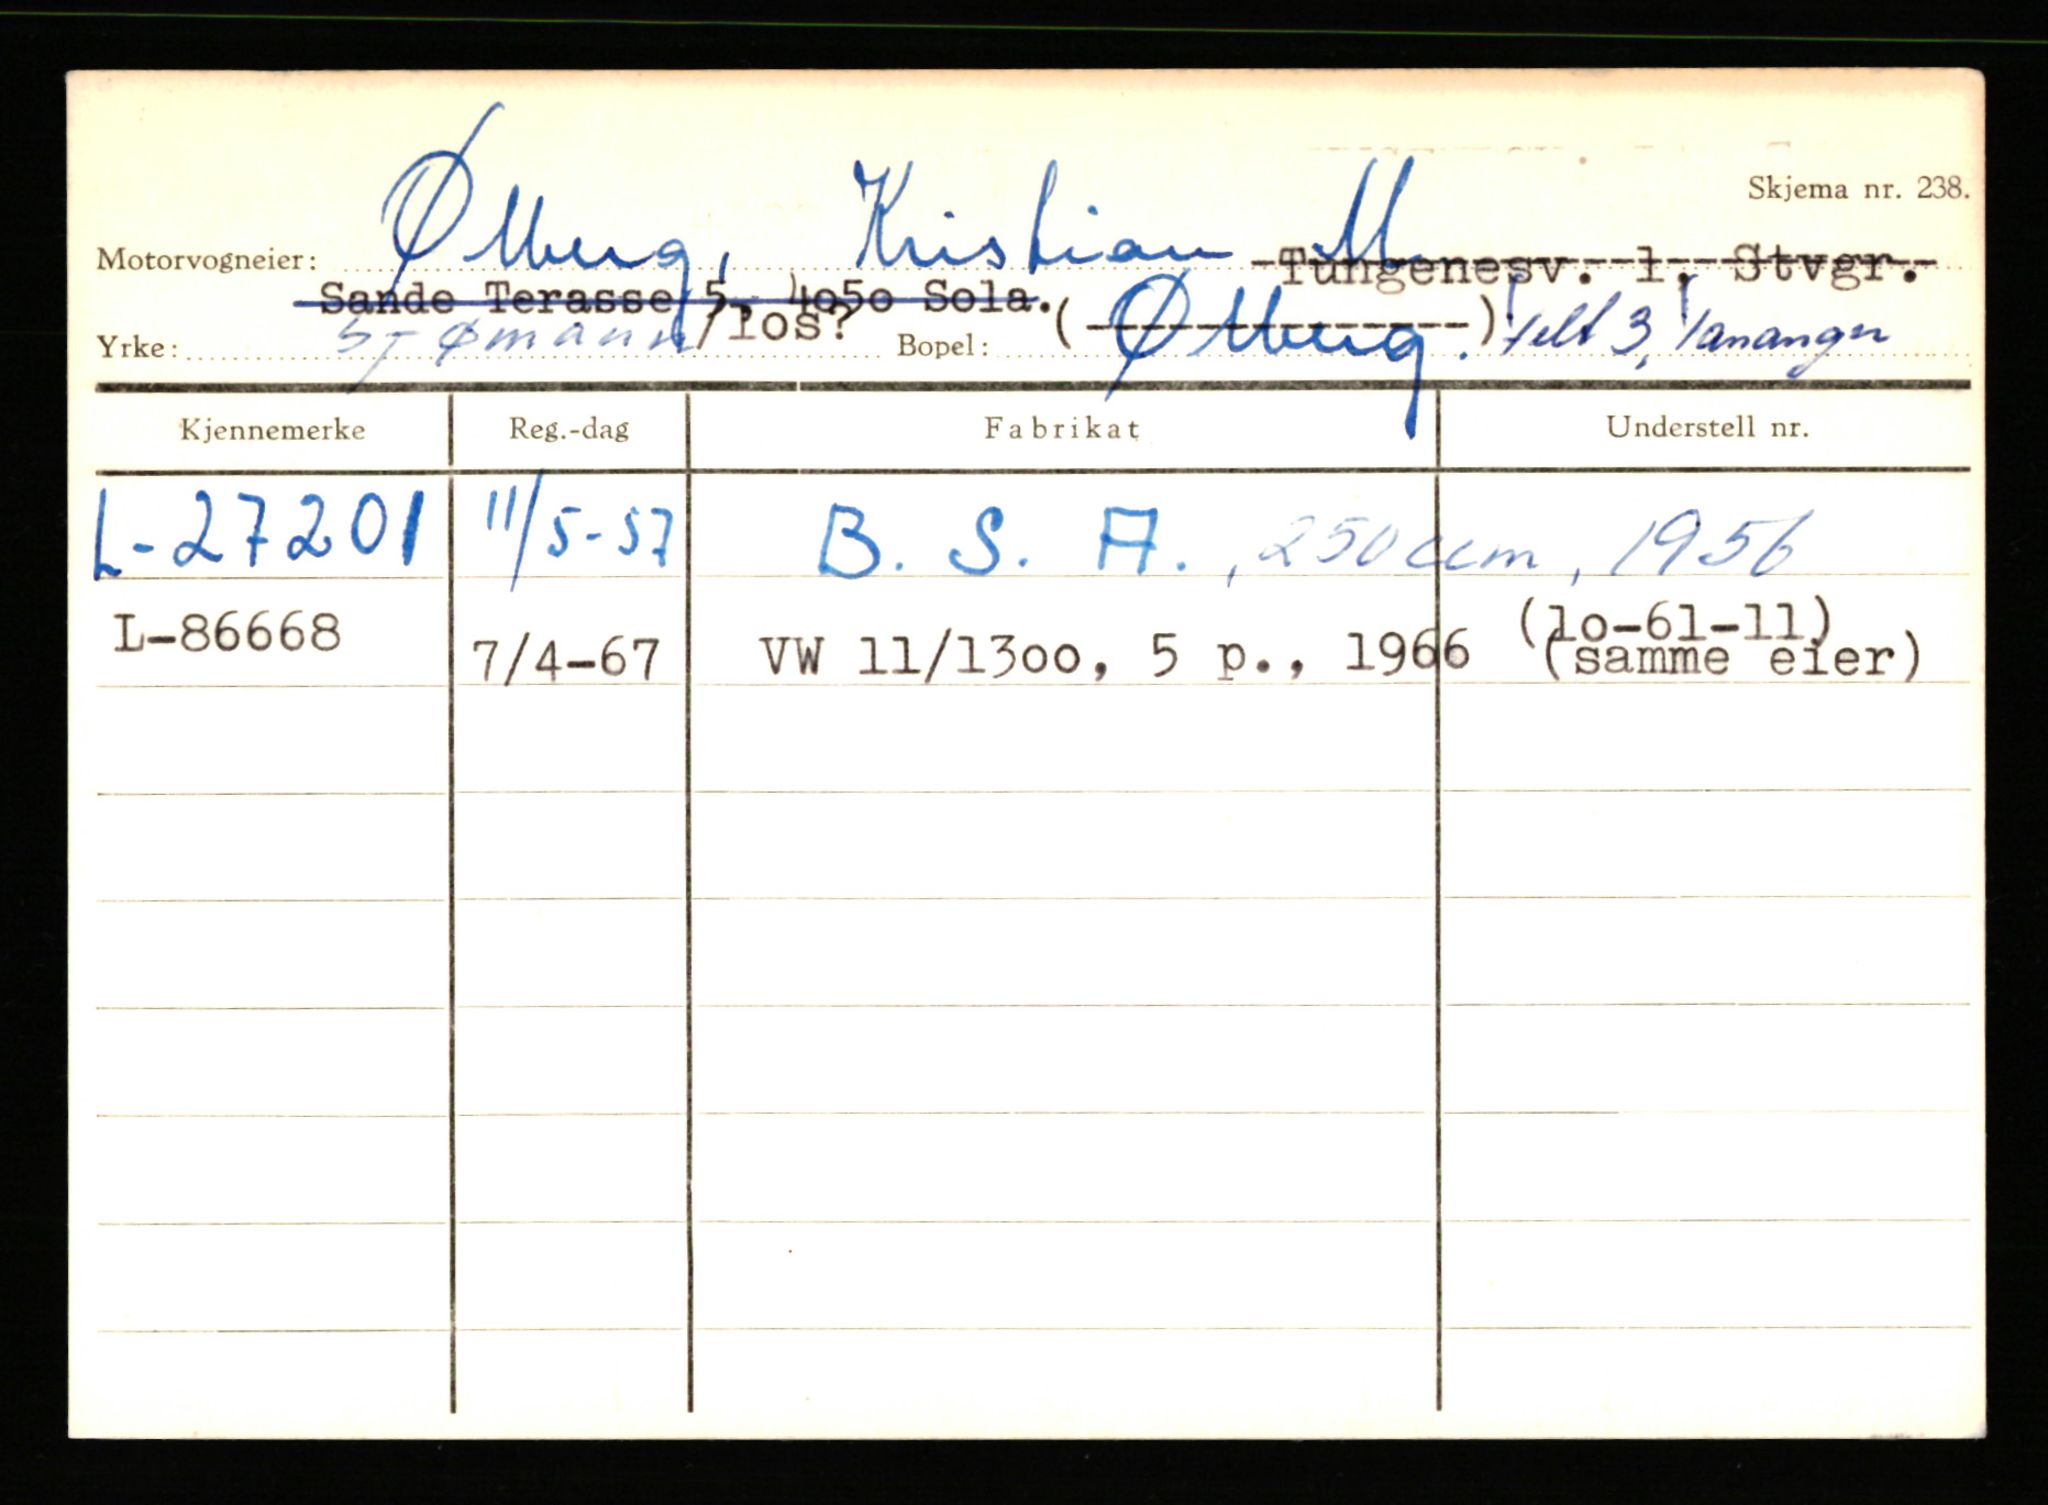 Skjema nr. 238.
Motorvogneier: Ølberg, Kristian M.
Tungenesv. 1, Stvgr.
Sande Terasse 5, 4o5o Sola.
Yrke: Sjømann/los? Bopel: (Ølberg.) Felt 3, Tananger
Kjennemerke Reg.-dag Fabrikat Understell nr.
L-27201 11/5-57 B. S. A., 250 ccm, 1956
L-86668 7/4-67 VW 11/13oo, 5 p., 1966 (1o-61-11)
(samme eier)